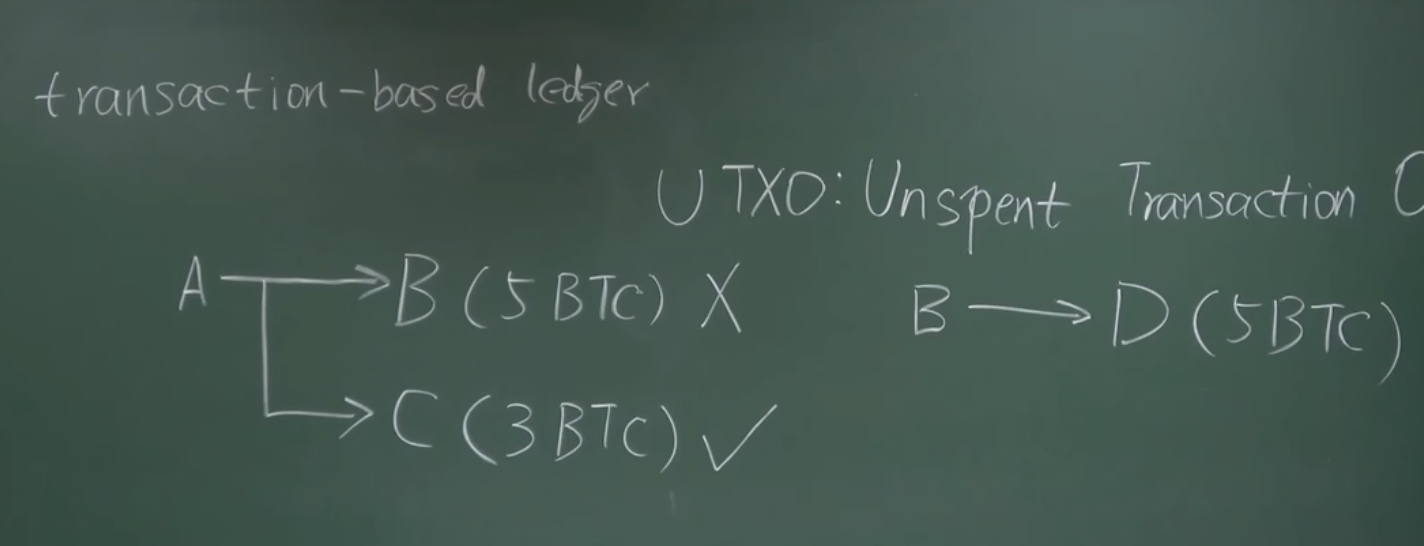 transaction-based ledger
UTXO: Unspent Transaction
A → B (5 BTC) X
B → D (5BTC)
C (3 BTC) ✓